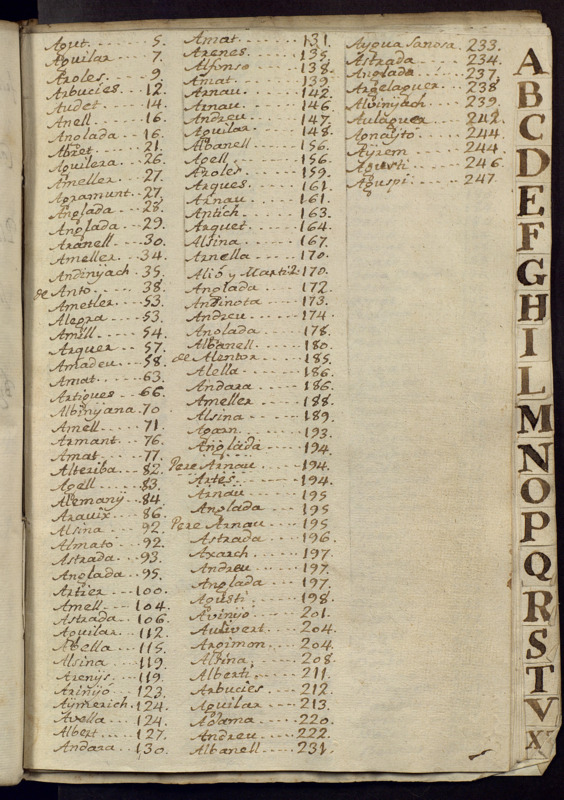 Agut 5.
Aguilar 7.
Aroles 9
Arbucies 12.
Audet 14.
Anell 16.
Anglada 16.
Abret 21.
Aguilera 26.
Ameller 27.
Agramunt 27.
Anglada 28.
Anglada 29.
Aranell 30.
Ameller 34.
Andinyach 35.
de Anto 38.
Ametler 53.
Alegra 53.
Amill 54.
Arquer 57.
Amadeu 58.
Amat 63.
Artigues 66.
Albinyana 70
Amell 71.
Armant 76.
Amat 77.
Alteriba 82.
Agell 83.
Alemany 84.
Arauix 86.
Alsina 92.
Almato 92.
Astrada 93.
Anglada 95.
Artier 100.
Amell 104.
Astrada 106.
Aguilar 112.
Abella 115.
Alsina 119.
Arenys 119.
Ariñyo 123.
Aymerich 124.
Avella 124.
Albert 127.
Andara 130.
Amat 131.
Arenes 135.
Alfonso 138.
Amat 139.
Arnau 142.
Arnau 146.
Andreu 147.
Aguilar 148.
Albanell 156.
Agell 156.
Aroles 159.
Argues 161.
Arnau 161.
Antich 163.
Arquet 164.
Alsina 167.
Arnella 170.
Alió y Martí 170.
Anglada 172.
Andinota 173.
Andreu 174.
Anglada 178.
Albanell 180.
de Alentor 185.
Alella 186.
Andara 186.
Ameller 188.
Alsina 189.
Agarn 193.
Anglada 194.
Pere Arnau 194.
Artés 194.
Arnau 195
Anglada 195
Pere Arnau 195
Astrada 196.
Axarch 197.
Andreu 197.
Anglada 197.
Agusti 198.
Aviñyo 201.
Aulivert 204.
Argimon 204.
Alsina 208.
Alberti 211.
Arbucies 212.
Aguilar 213.
Adama 220.
Andreu 222.
Albanell 231.
Aygua Sanosa 233.
Astrada 234.
Anglada 237.
Argelaguer 238
Alvinyach 239.
Aulaguer 242.
Agnaytó 244
Ayrem 244
Agusti 246.
Aguspi 247.
A
B
C
D
E
F
G
H
I
L
M
N
O
P
Q
R
S
T
V
X